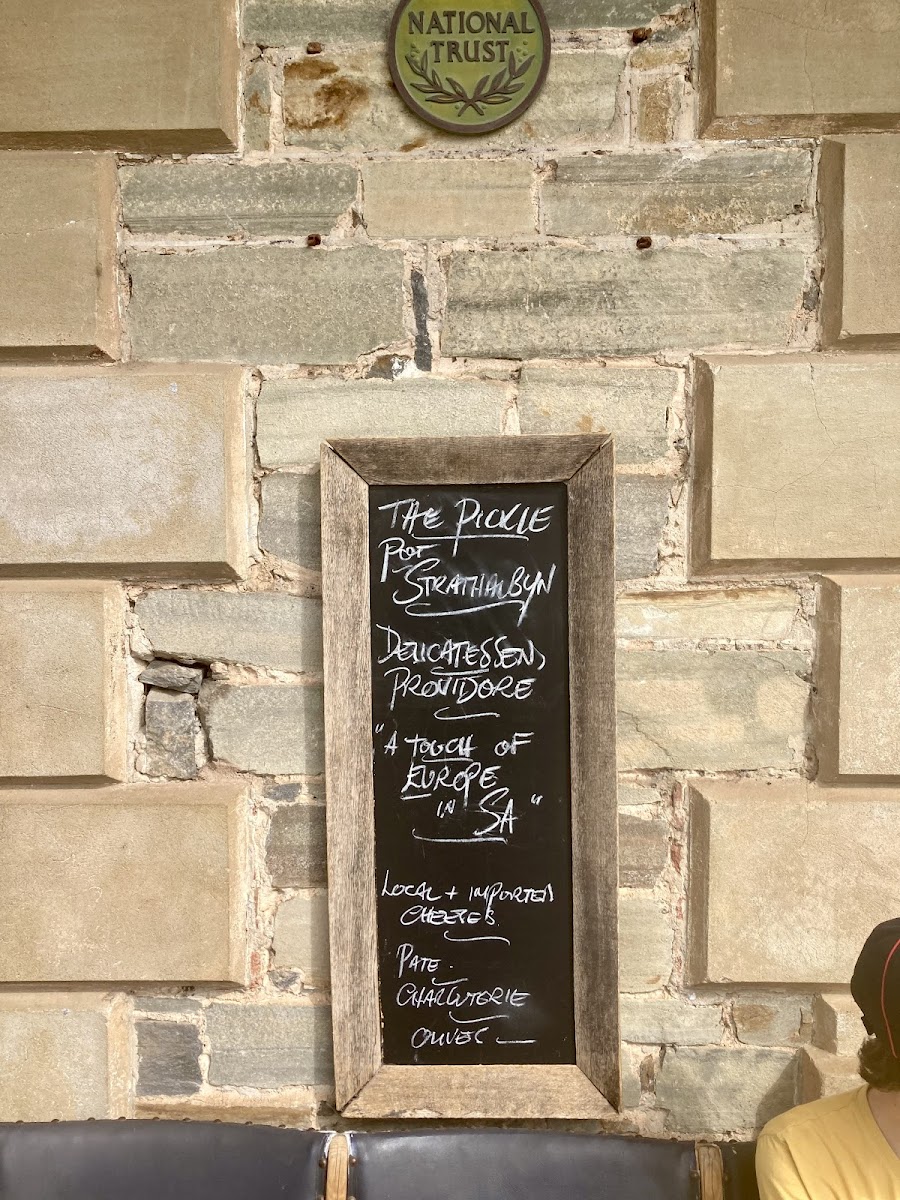 NATIONAL
TRUST
THE PICKLE
POT
STRATHALBYN
DELICATESSEN,
PROVIDORE
"A TOUCH OF
EUROPE
IN SA"
LOCAL + IMPORTED
CHEESES.
PATE.
CHARCUTERIE
OLIVES